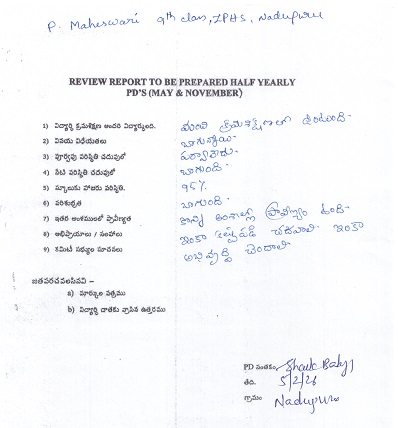 P. Maheswari 9th class, ZPHS, Nadupuru
REVIEW REPORT TO BE PREPARED HALF YEARLY
PD'S (MAY & NOVEMBER)
1) విద్యార్థి క్రమశిక్షణ అందరి విద్యార్థుంది. మంచి క్రమశిక్షణలో ఉంటుంది.
2) వినయ విధేయతలు బాగున్నాయి
3) పూర్వపు పరిస్థితి చదువులో పర్వాలేదు.
4) నేటి పరిస్థితి చదువులో బాగుంది.
5) స్కూలుకు హాజరు పరిస్థితి. 95%
6) పరిశుభ్రత బాగుంది.
7) ఇతర అంశములలో ప్రావీణ్యత కొన్ని అంశాల్లో ప్రావీణ్యం ఉంది.
8) అభిప్రాయాలు / సలహాలు ఇంకా కష్టపడి చదవాలి. ఇంకా
9) కమిటీ సభ్యుల సూచనలు అభివృద్ధి చెందాలి
జతపరచవలసినవి -
a) మార్కుల పత్రము
b) విద్యార్థి దాతకు వ్రాసిన ఉత్తరము
PD సంతకం, Shaik Babji
తేది. 5/2/26
గ్రామం Nadupuru